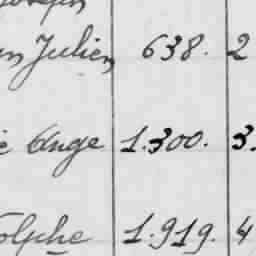 Julien 638. 2
Ange 1.300. 3.
olphe 1.919. 4